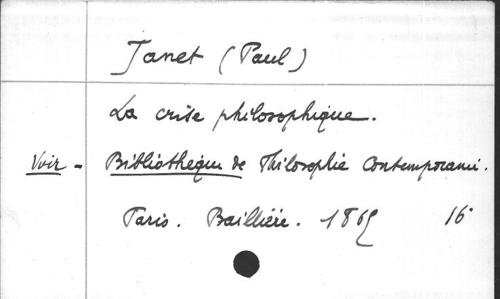 Janet (Paul)
La crise philosophique.
Voir - Bibliothèque de Philosophie Contemporaine.
Paris. Baillière. 1865 16°